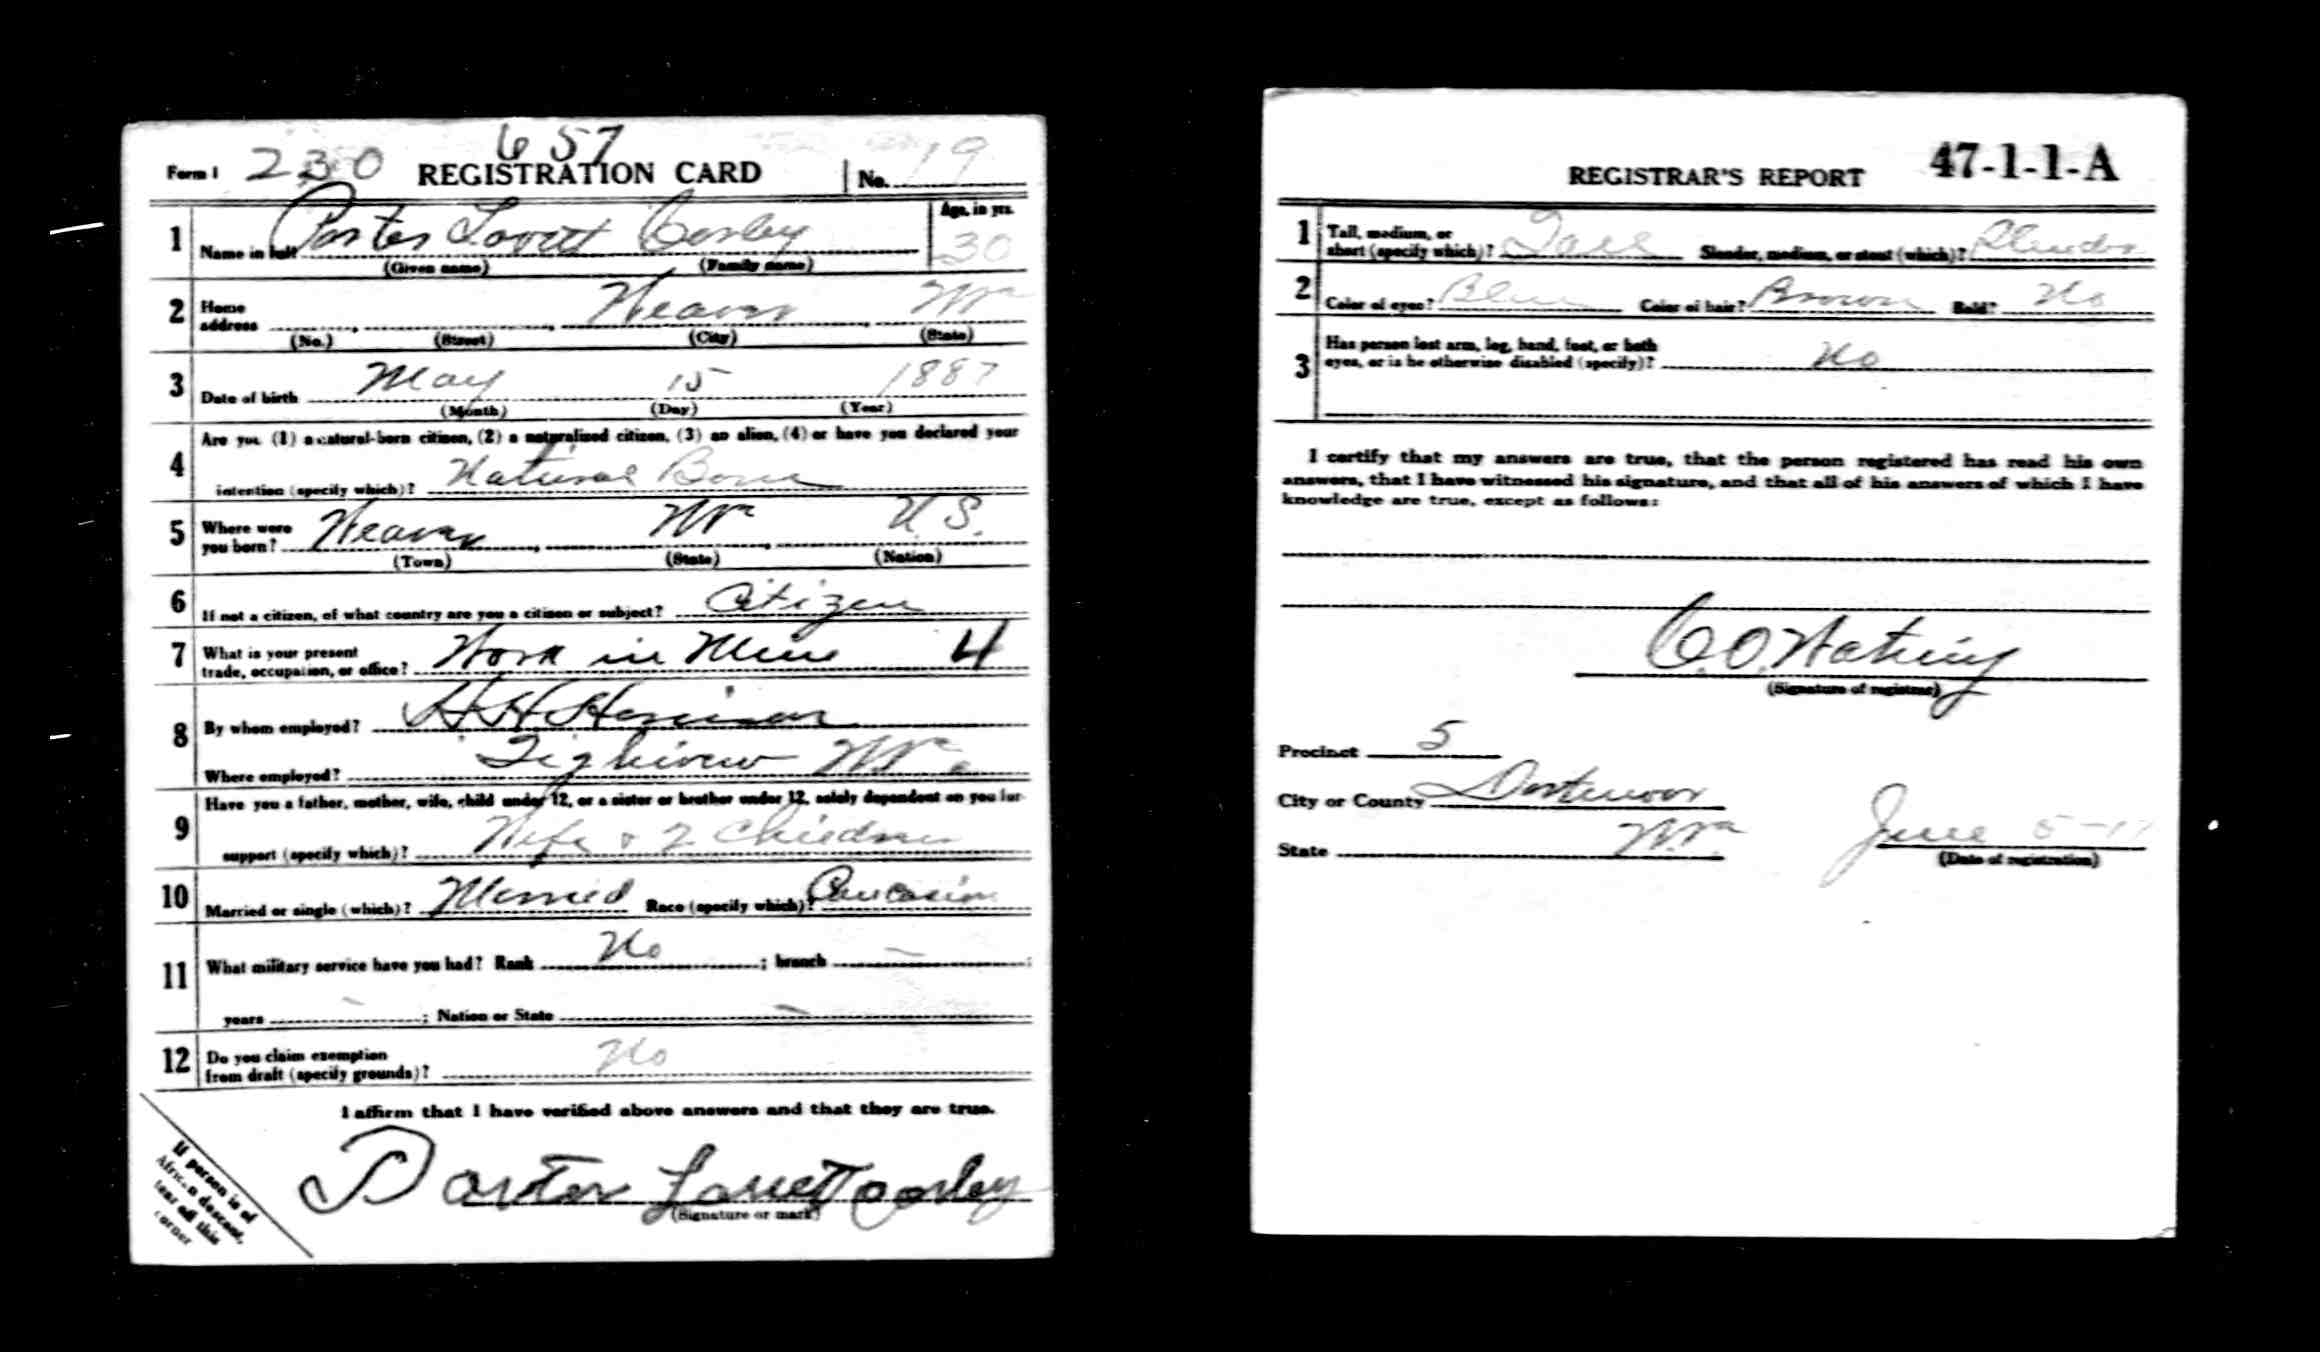 Form 1 230 657 REGISTRATION CARD No. 19
1 Name in full Porter Lovett Corley Age, in yrs. 30
(Given name) (Family name)
2 Home address Weaver
(No.) (Street) (City) (State)
3 Date of birth May 15 1887
(Month) (Day) (Year)
4 Are you (1) a natural-born citizen, (2) a naturalized citizen, (3) an alien, (4) or have you declared your
intention (specify which)? Natural Born
5 Where were you born? Weaver U.S.
(Town) (State) (Nation)
6 If not a citizen, of what country are you a citizen or subject? Citizen
7 What is your present
trade, occupation, or office? Work in Mine 4
8 By whom employed? H H
Where employed?
9 Have you a father, mother, wife, child under 12, or a sister or brother under 12, solely dependent on you for
support (specify which)? Wife & 2 Children
10 Married or single (which)? Married Race (specify which)? Caucasian
11 What military service have you had? Rank No ; branch — ;
years — ; Nation or State —
12 Do you claim exemption
from draft (specify grounds)? No
I affirm that I have verified above answers and that they are true.
Porter Lovett Corley
(Signature or mark)
If person is of
African descent,
tear off this
corner
REGISTRAR'S REPORT 47-1-1-A
1 Tall, medium, or
short (specify which)? Tall Slender, medium, or stout (which)? Slender
2 Color of eyes? Blue Color of hair? Brown Bald? No
3 Has person lost arm, leg, hand, foot, or both
eyes, or is he otherwise disabled (specify)? No
I certify that my answers are true, that the person registered has read his own
answers, that I have witnessed his signature, and that all of his answers of which I have
knowledge are true, except as follows:
C.O.
(Signature of registrar)
Precinct 5
City or County
State June 5-17
(Date of registration)